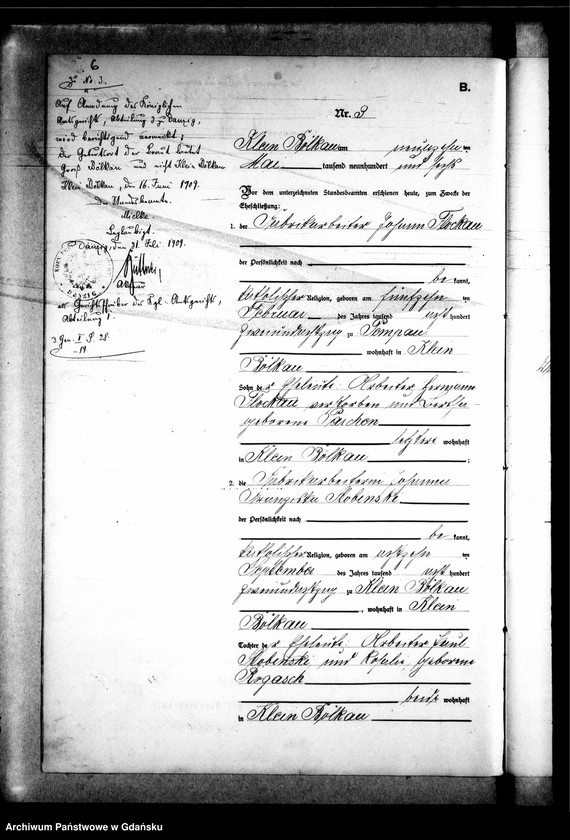 6
Zu Nr. 3.
Auf Anordnung des Königlichen
Amtsgerichts, Abteilung 3 zu Danzig,
wird berichtigend vermerkt:
der Geburtsort der Braut lautet
Groß Bölkau und nicht Klein Bölkau
Klein Bölkau, den 16. Juni 1909.
Der Standesbeamte.
Mielke
Beglaubigt.
Danzig, den 31. Juli 1909.
DANZIG
als Gerichtsschreiber des Kgl. Amtsgerichts,
Abteilung 1.
B.
Nr. 3
Klein Bölkau am neunzehn ten
Mai tausend neunhundert und sechs
Vor dem unterzeichneten Standesbeamten erschienen heute, zum Zwecke der
Eheschließung:
1. der Fabrikarbeiter Johann Stockau
der Persönlichkeit nach
be kannt,
katholischer Religion, geboren am fünfzehn ten
Februar des Jahres tausend acht hundert
zweiundachtzig zu Pompau
, wohnhaft in Klein
Bölkau
Sohn der Eheleute: Arbeiter Hermann
Stockau verstorben und Bertha
geborene Parchen
letztere wohnhaft
in Klein Bölkau ;
2. die Fabrikarbeiterin Johanna
Franziska Skobenske
der Persönlichkeit nach
be kannt,
katholischer Religion, geboren am achtzehn ten
September des Jahres tausend acht hundert
zweiundachtzig zu Klein Bölkau
, wohnhaft in Klein
Bölkau
Tochter der Eheleute: Arbeiter Paul
Skobenski und Rosalie geborene
Rogasch
beide wohnhaft
in Klein Bölkau
Archiwum Państwowe w Gdańsku